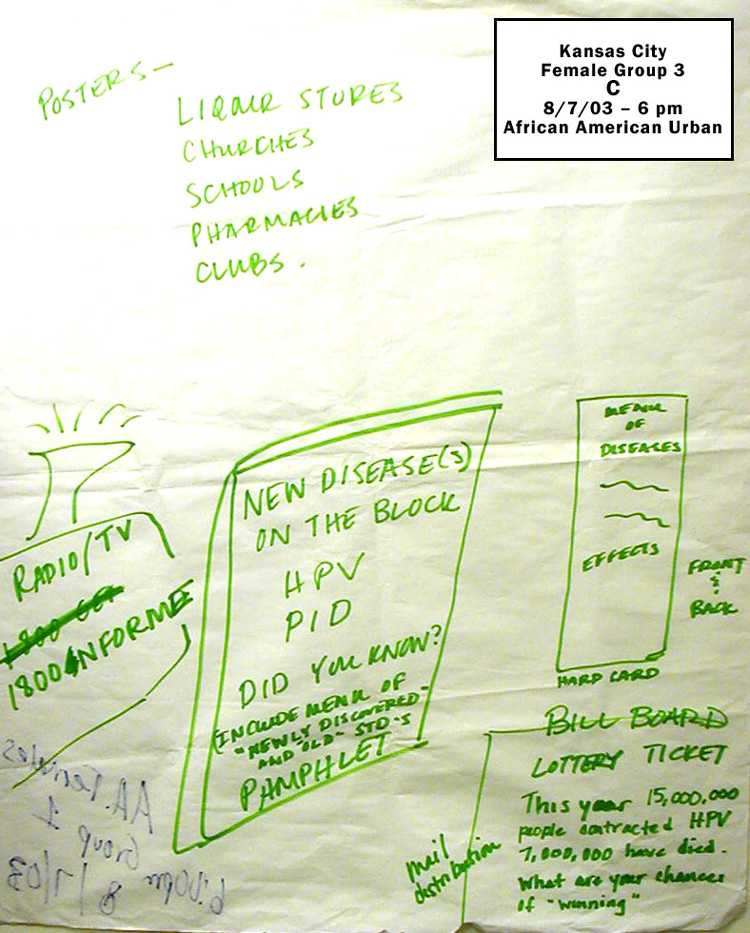 Kansas City
Female Group 3
C
8/7/03 – 6 pm
African American Urban
POSTERS –
LIQUOR STORES
CHURCHES
SCHOOLS
PHARMACIES
CLUBS.
RADIO/TV
1800 GET
1800 INFORME
NEW DISEASE(S)
ON THE BLOCK
HPV
PID
DID YOU KNOW?
(INCLUDE MENU OF
"NEWLY DISCOVERED"
AND "OLD" STD'S
PAMPHLET
MENU
OF
DISEASES
EFFECTS
FRONT
&
BACK
HARD CARD
BILL BOARD
LOTTERY TICKET
This year 15,000,000
people contracted HPV
7,000,000 have died.
What are your chances
of "winning"
mail
distribution
A.A. Females
Group 1
6:00pm 8/7/03